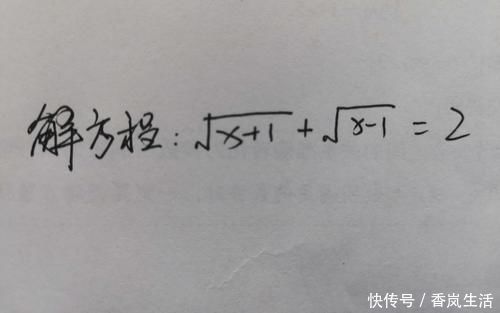 解方程：√(x+1) + √(x-1) = 2
快传号/香岚生活